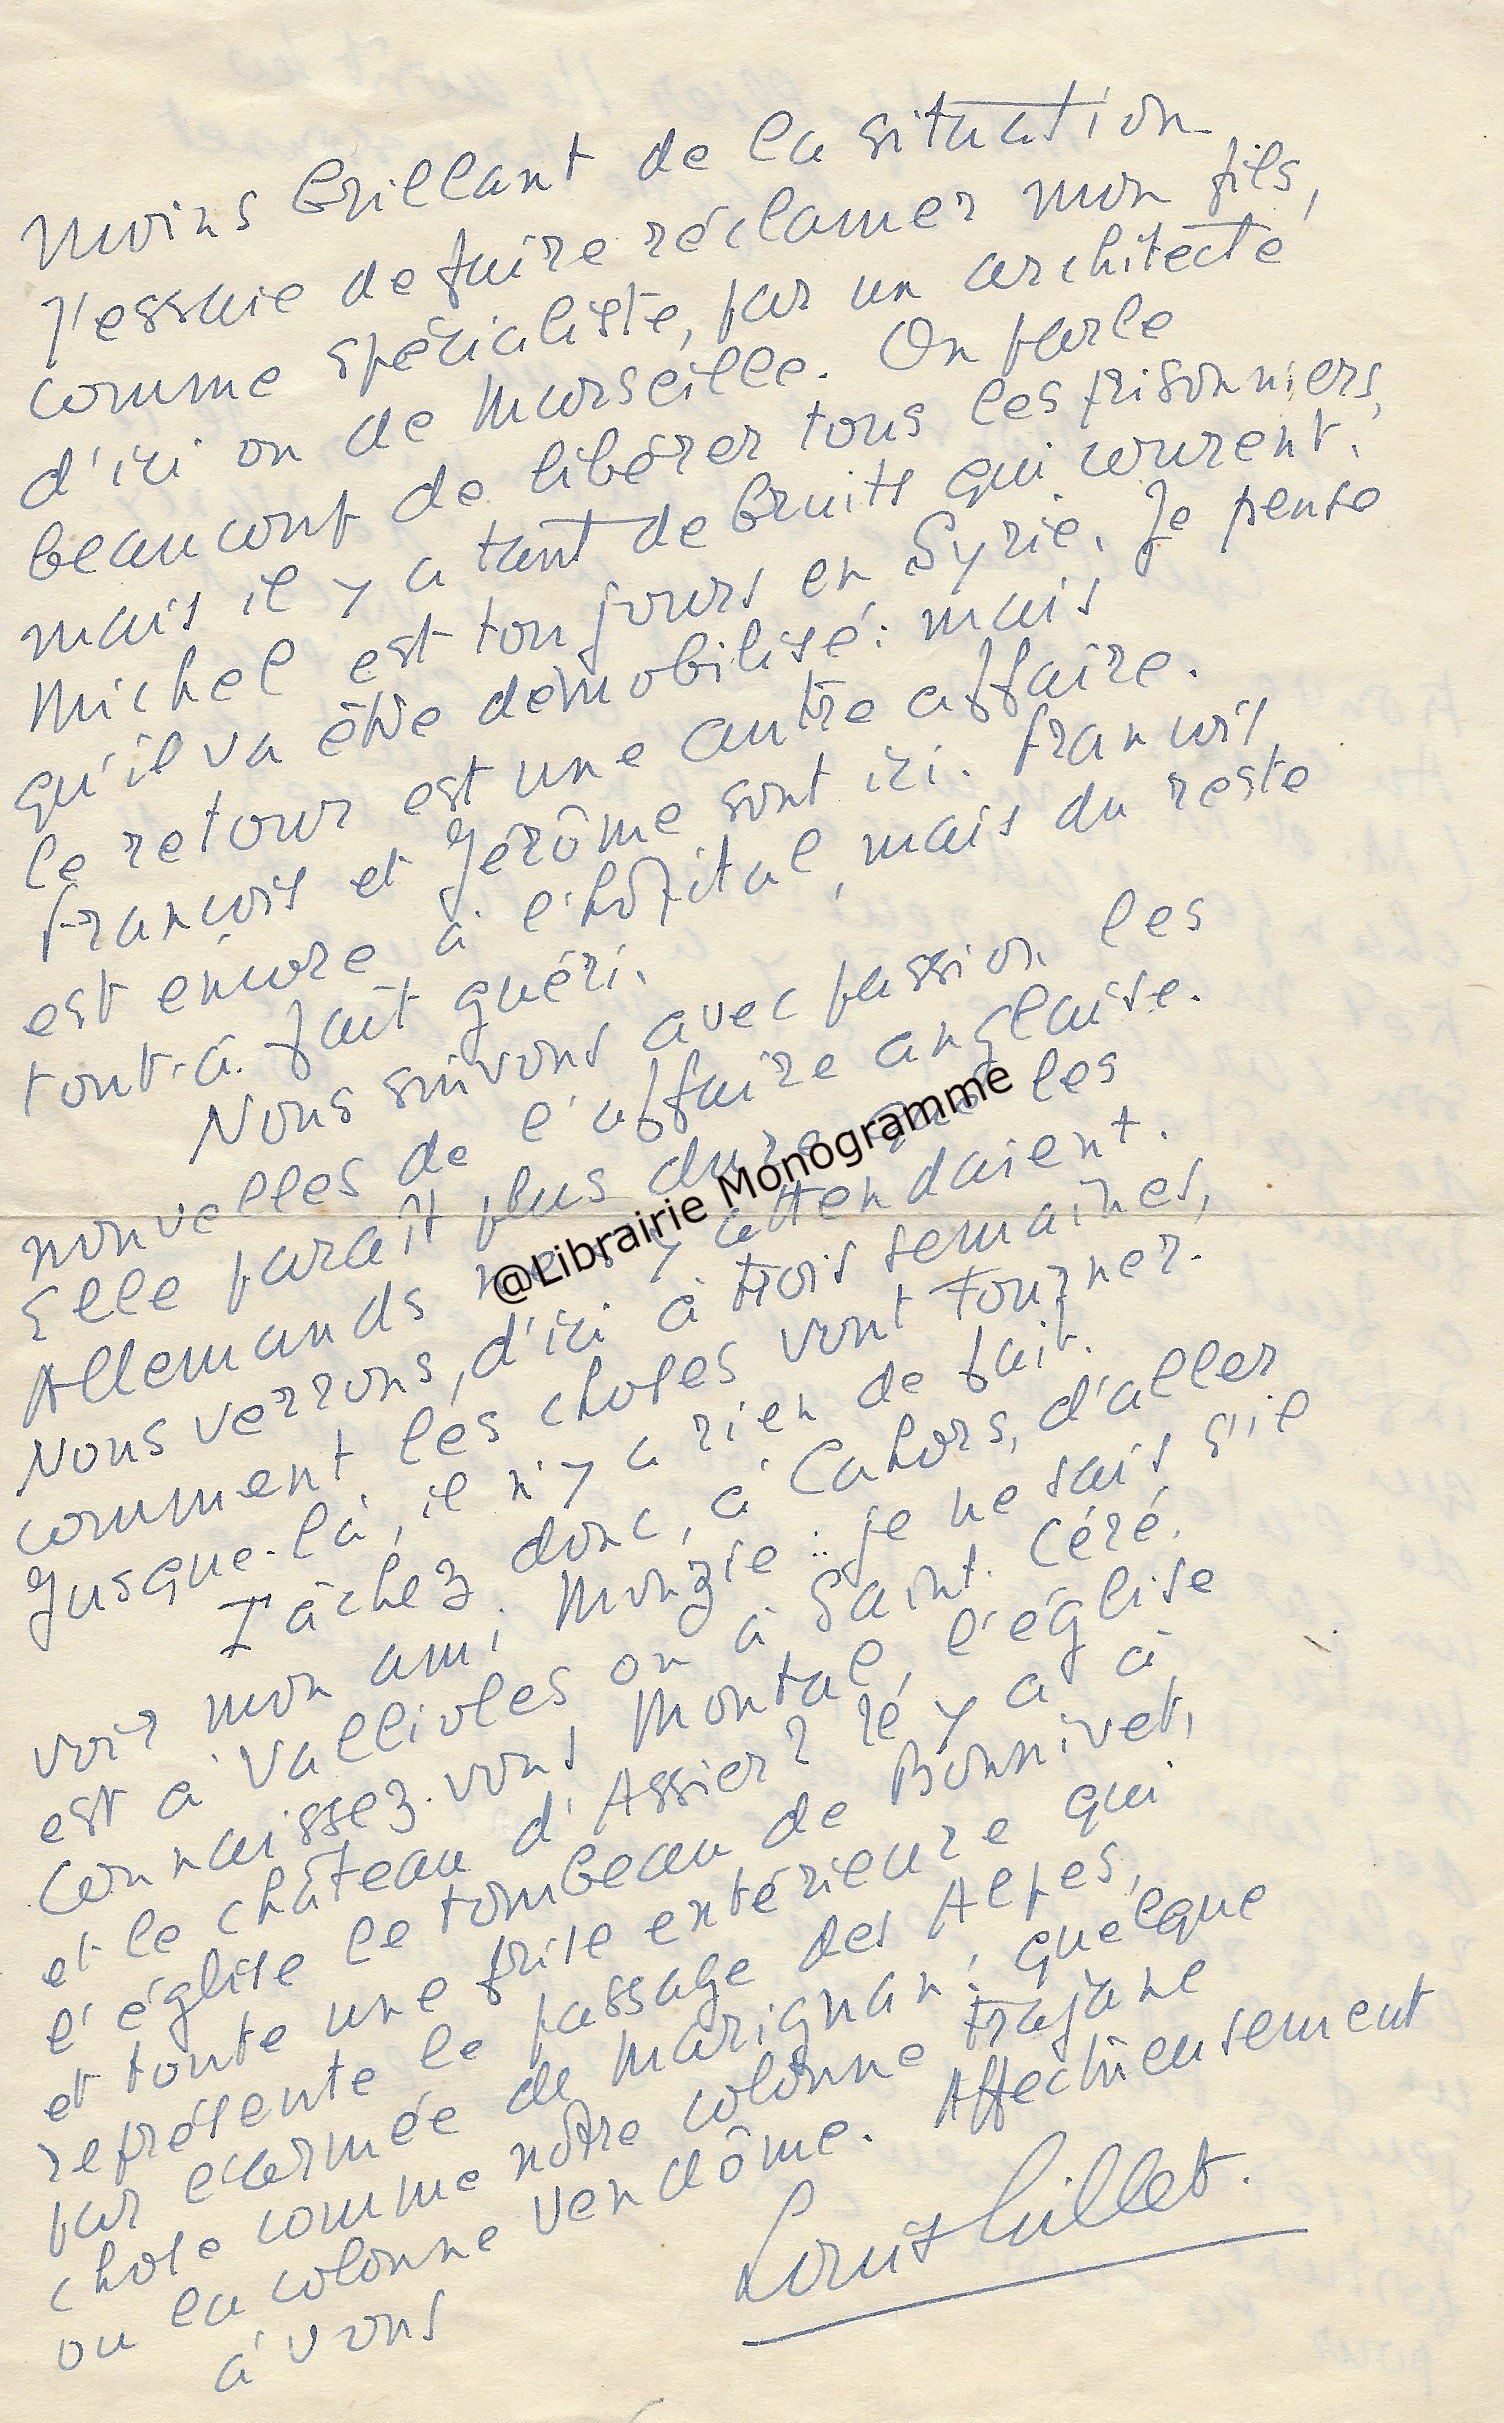 moins brillant de la situation.
J'essaie de faire réclamer mon fils,
comme spécialiste, par un architecte
d'ici ou de Marseille. On parle
beaucoup de libérer tous les prisonniers,
mais il y a tant de bruits qui courent.
Michel est toujours en Syrie. Je pense
qu'il va être démobilisé : mais
le retour est une autre affaire.
François et Jérôme sont ici. François
est encore à l'hôpital, mais du reste
tout-à-fait guéri.
Nous suivons avec passion les
nouvelles de l'affaire anglaise.
Elle paraît plus dure que les
Allemands ne s'y attendaient.
Nous verrons, d'ici à trois semaines,
comment les choses vont tourner.
Jusque-là, il n'y a rien de fait.
Tâchez donc, à Cahors, d'aller
voir mon ami Monzie : je ne sais s'il
est à Vallioles ou à Saint-Céré.
Connaissez-vous Montal, l'église
et le château d'Assier ? Il y a à
l'église le tombeau de Bonnivet,
et toute une frise extérieure qui
représente le passage des Alpes,
par l'armée de Marignan : quelque
chose comme notre colonne trajane
ou la colonne vendôme. Affectueusement
à vous
Louis Gillet.
@Librairie Monogramme